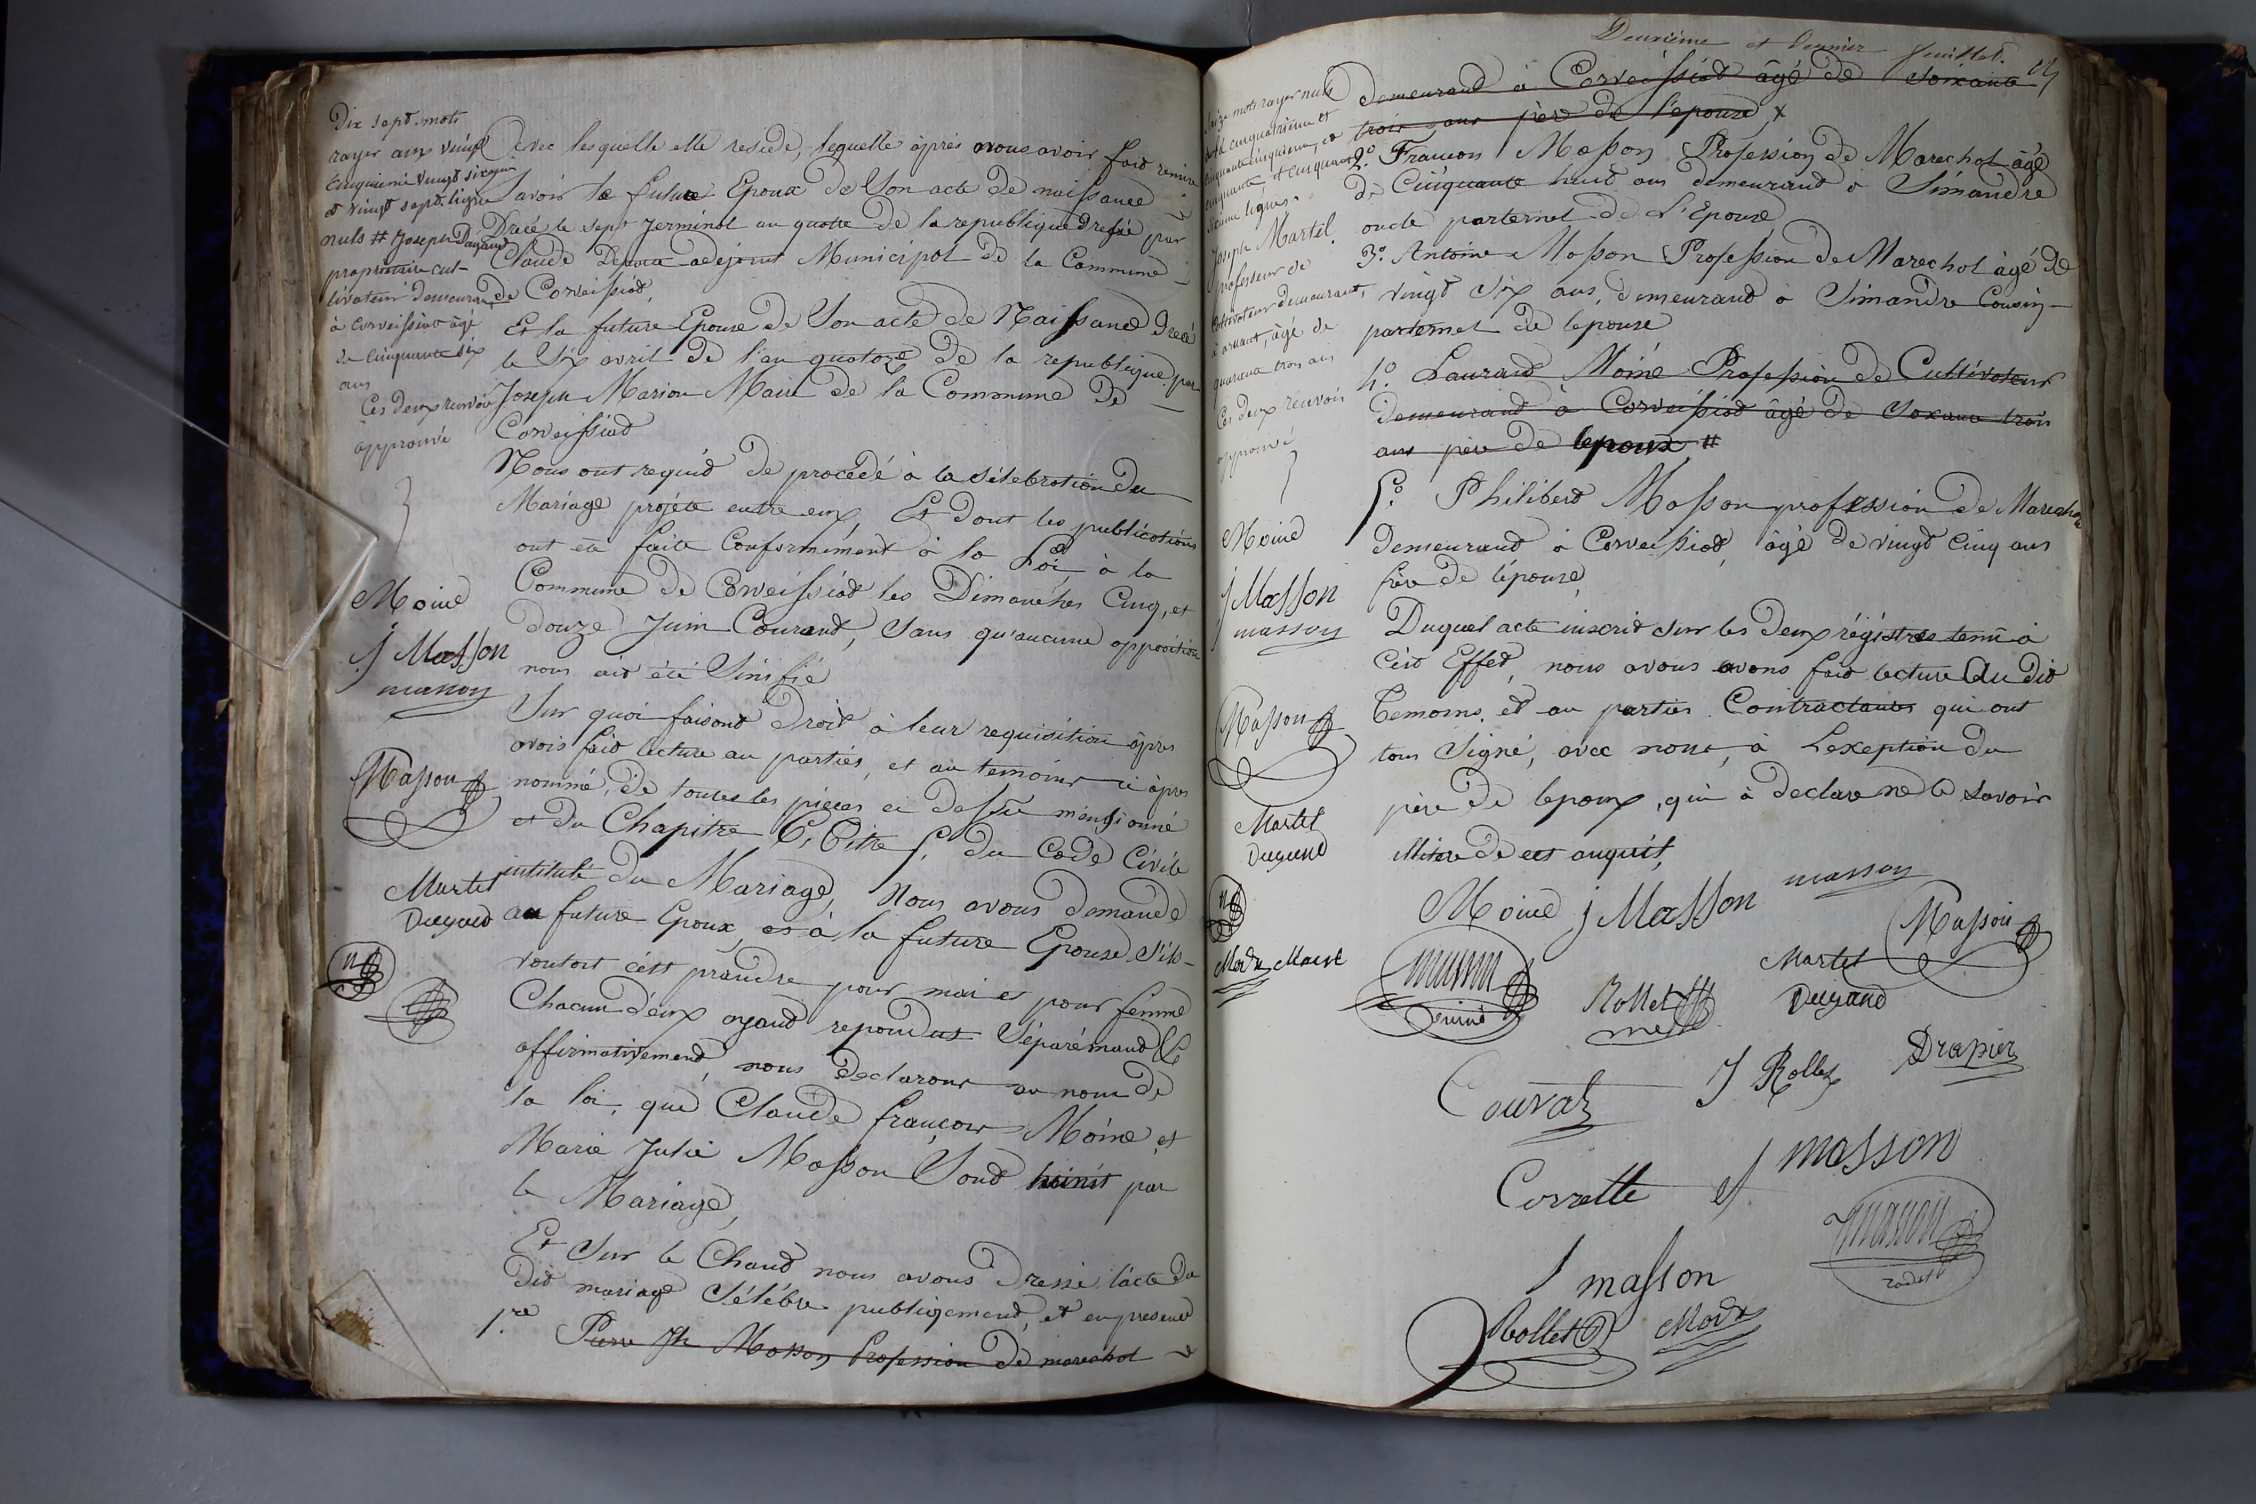 Dix sept mots
rayer aux vingt
cinquieme vingt sixieme
et vingt sept. ligne
nuls # Joseph Dugand
propriétaire cul-
tivateur demeurant
à Corveissiat âgé
de Cinquante six
ans
Ces deux renvoir
approuvé
Moine
j Masson
masson
Masson
Martel
Dugand
avec lesquelle elle reside, lequelle âprés nous avoir fait remire
Savoir le futur Epoux de Son acte de naissance
Dréçé le sept Jerminal an quatre de la republique dressé par
Claude adejoint Municipal de la Commune
de Corveissiat,
Et la future Epouse de Son acte de Naissance Drecé
le Six avril de l'an quatorze de la republique par
Joseph Marion Maire de la Commune de
Corveissiat
Nous ont requis de procédé à la Sélebration du
Mariage projété entre eux, Et dont les publications
ont été faite Conformément à la Loi, à la
Commune de Corveissiat les Dimanches Cinq, et
douze Juin Courant, Sans qu'aucune opposition
nous ait été Sinifié
Sur quoi faisont Droit à leur requisition âpres
avoir fait lecture au partiés, et au temoins ci âpres
nommé, de toutes les piéces ci dessu mensionné
et du Chapitre 6, Titre 5, du Code Civile
intitulé du Mariage, Nous avons demandé
au future Epoux, et à la future Epouse S'ils
vouloit cést prandre pour mari et pour femme
Chacun d'eux ayant repondut Séparémand &
affirmativement, nous declarons au nom de
la loi, que Claude françois Moine, et
Marie Julie Masson Sont hunit par
le Mariage,
Et Sur le Chand nous avons Dressé l'acte du
dit mariage Sélébre publiqement, et en presence
1.re Pierre Jh Masson Profession de marechal
Deuxième et dernier feuillet.
Seize mots rayer nuls
cinquante cinquieme, et
cinquante
Sixieme lignes.
Joseph Martel
Professeur de
Cultivateur demeurant,
à arnant, âgé de
quarante trois ans
Ces deux renvoir
approuvé
Moine
j Masson
masson
Masson
Martel
Dugand
Mord Maire
demeurand à Corveissiat âgé de soixante
trois ans père de l'epouse, x
2.º François Masson Profession de Marechal âgé
de Cinquante huit ans demeurand à Simandre
oncle parternel de L'Epouse
3.º Antoine Masson Profession de Marechal âgé de
vingt Six ans, demeurand à Simandre Cousin
parternel de lepouse
4.º Laurand Moine Profession de Cultivateur
demeurand à Corveissiat âgé de Soxante trois
ans pére de lepoux #
5.º Philibert Masson profession de Marechal
Demeurand à Corveissiat, âgé de vingt Cinq ans
frére de lépouse,
Duquel acte inscrit sur les deux régistres tenû à
Cèt Effet, nous avons avons fait lecture Au dit
Temoins, et au parties Contractantes qui ont
tous Signé, avec nous, à Lexeption du
pére de lepoux, qui à declaré ne le savoir
illitere de cet anquit,
Moine j Masson masson
Masson
Rollet
Martel
Dugand
Couvat J Rollet Drapier
Corrette J masson
J masson
Rollet
Mord